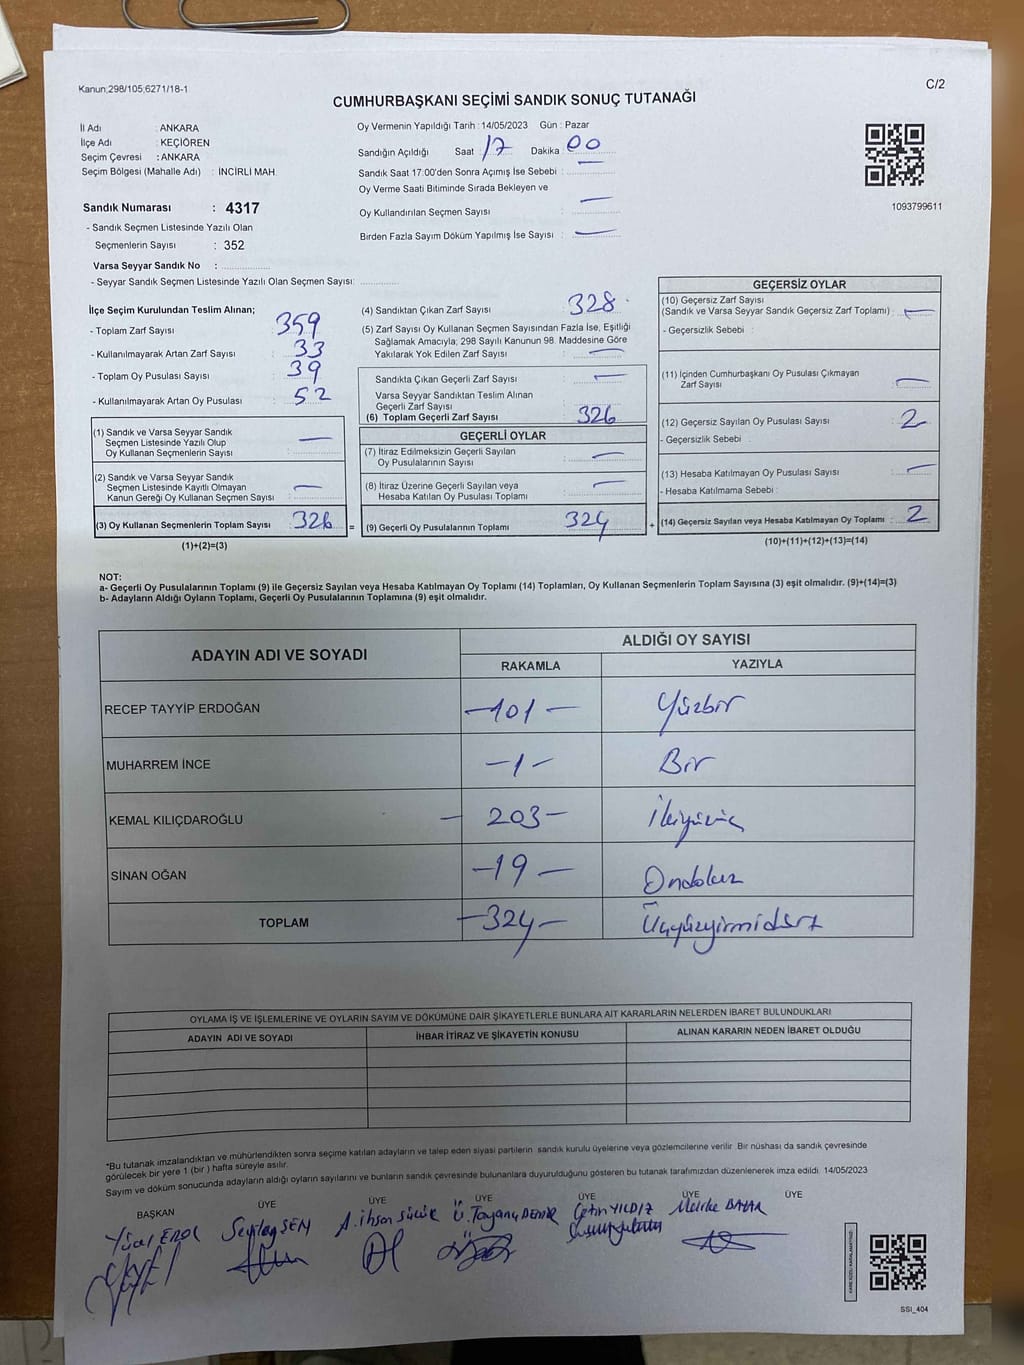 Kanun,298/105,6271/18-1
C/2
CUMHURBAŞKANI SEÇİMİ SANDIK SONUÇ TUTANAĞI
İl Adı : ANKARA
İlçe Adı : KEÇİÖREN
Seçim Çevresi : ANKARA
Seçim Bölgesi (Mahalle Adı) : İNCİRLİ MAH.
Sandık Numarası : 4317
- Sandık Seçmen Listesinde Yazılı Olan
Seçmenlerin Sayısı : 352
Varsa Seyyar Sandık No :
- Seyyar Sandık Seçmen Listesinde Yazılı Olan Seçmen Sayısı:
Oy Vermenin Yapıldığı Tarih : 14/05/2023 Gün : Pazar
Sandığın Açıldığı Saat 17 Dakika 00
Sandık Saat 17.00'den Sonra Açımış İse Sebebi : —
Oy Verme Saati Bitiminde Sırada Bekleyen ve
Oy Kullandırılan Seçmen Sayısı : —
Birden Fazla Sayım Döküm Yapılmış İse Sayısı : —
1093799611
İlçe Seçim Kurulundan Teslim Alınan;
- Toplam Zarf Sayısı : 359
- Kullanılmayarak Artan Zarf Sayısı : 33
- Toplam Oy Pusulası Sayısı : 39
- Kullanılmayarak Artan Oy Pusulası : 52
(1) Sandık ve Varsa Seyyar Sandık
Seçmen Listesinde Yazılı Olup
Oy Kullanan Seçmenlerin Sayısı : —
(2) Sandık ve Varsa Seyyar Sandık
Seçmen Listesinde Kayıtlı Olmayan
Kanun Gereği Oy Kullanan Seçmen Sayısı : —
(3) Oy Kullanan Seçmenlerin Toplam Sayısı 326 =
(1)+(2)=(3)
(4) Sandıktan Çıkan Zarf Sayısı : 328
(5) Zarf Sayısı Oy Kullanan Seçmen Sayısından Fazla İse, Eşitliği
Sağlamak Amacıyla; 298 Sayılı Kanunun 98. Maddesine Göre
Yakılarak Yok Edilen Zarf Sayısı : —
Sandıkta Çıkan Geçerli Zarf Sayısı : —
Varsa Seyyar Sandıktan Teslim Alınan
Geçerli Zarf Sayısı :
(6) Toplam Geçerli Zarf Sayısı 326
GEÇERLİ OYLAR
(7) İtiraz Edilmeksizin Geçerli Sayılan
Oy Pusulalarının Sayısı : —
(8) İtiraz Üzerine Geçerli Sayılan veya
Hesaba Katılan Oy Pusulası Toplamı : —
(9) Geçerli Oy Pusulalarının Toplamı 324 +
GEÇERSİZ OYLAR
(10) Geçersiz Zarf Sayısı
(Sandık ve Varsa Seyyar Sandık Geçersiz Zarf Toplamı) : —
- Geçersizlik Sebebi :
(11) İçinden Cumhurbaşkanı Oy Pusulası Çıkmayan
Zarf Sayısı : —
(12) Geçersiz Sayılan Oy Pusulası Sayısı : 2
- Geçersizlik Sebebi :
(13) Hesaba Katılmayan Oy Pusulası Sayısı : —
- Hesaba Katılmama Sebebi :
(14) Geçersiz Sayılan veya Hesaba Katılmayan Oy Toplamı : 2
(10)+(11)+(12)+(13)=(14)
NOT:
a- Geçerli Oy Pusulalarının Toplamı (9) ile Geçersiz Sayılan veya Hesaba Katılmayan Oy Toplamı (14) Toplamları, Oy Kullanan Seçmenlerin Toplam Sayısına (3) eşit olmalıdır. (9)+(14)=(3)
b- Adayların Aldığı Oyların Toplamı, Geçerli Oy Pusulalarının Toplamına (9) eşit olmalıdır.
ADAYIN ADI VE SOYADI ALDIĞI OY SAYISI
RAKAMLA YAZIYLA
RECEP TAYYİP ERDOĞAN —101— Yüzbir
MUHARREM İNCE —1— Bir
KEMAL KILIÇDAROĞLU — 203— İkiyüzüç
SİNAN OĞAN —19— Ondokuz
TOPLAM —324— Üçyüzyirmidört
OYLAMA İŞ VE İŞLEMLERİNE VE OYLARIN SAYIM VE DÖKÜMÜNE DAİR ŞİKAYETLERLE BUNLARA AİT KARARLARIN NELERDEN İBARET BULUNDUKLARI
ADAYIN ADI VE SOYADI İHBAR İTİRAZ VE ŞİKAYETİN KONUSU ALINAN KARARIN NEDEN İBARET OLDUĞU
*Bu tutanak imzalandıktan ve mühürlendikten sonra seçime katılan adayların ve talep eden siyasi partilerin sandık kurulu üyelerine veya gözlemcilerine verilir. Bir nüshası da sandık çevresinde
görülecek bir yere 1 (bir ) hafta süreyle asılır.
Sayım ve döküm sonucunda adayların aldığı oyların sayılarını ve bunların sandık çevresinde bulunanlara duyurulduğunu gösteren bu tutanak tarafımızdan düzenlenerek imza edildi. 14/05/2023
BAŞKAN ÜYE ÜYE ÜYE ÜYE ÜYE ÜYE
EROL ŞEN A. İhsan Ü. Tayanç DEMİR Çetin YILDIZ Melike
SSİ_404